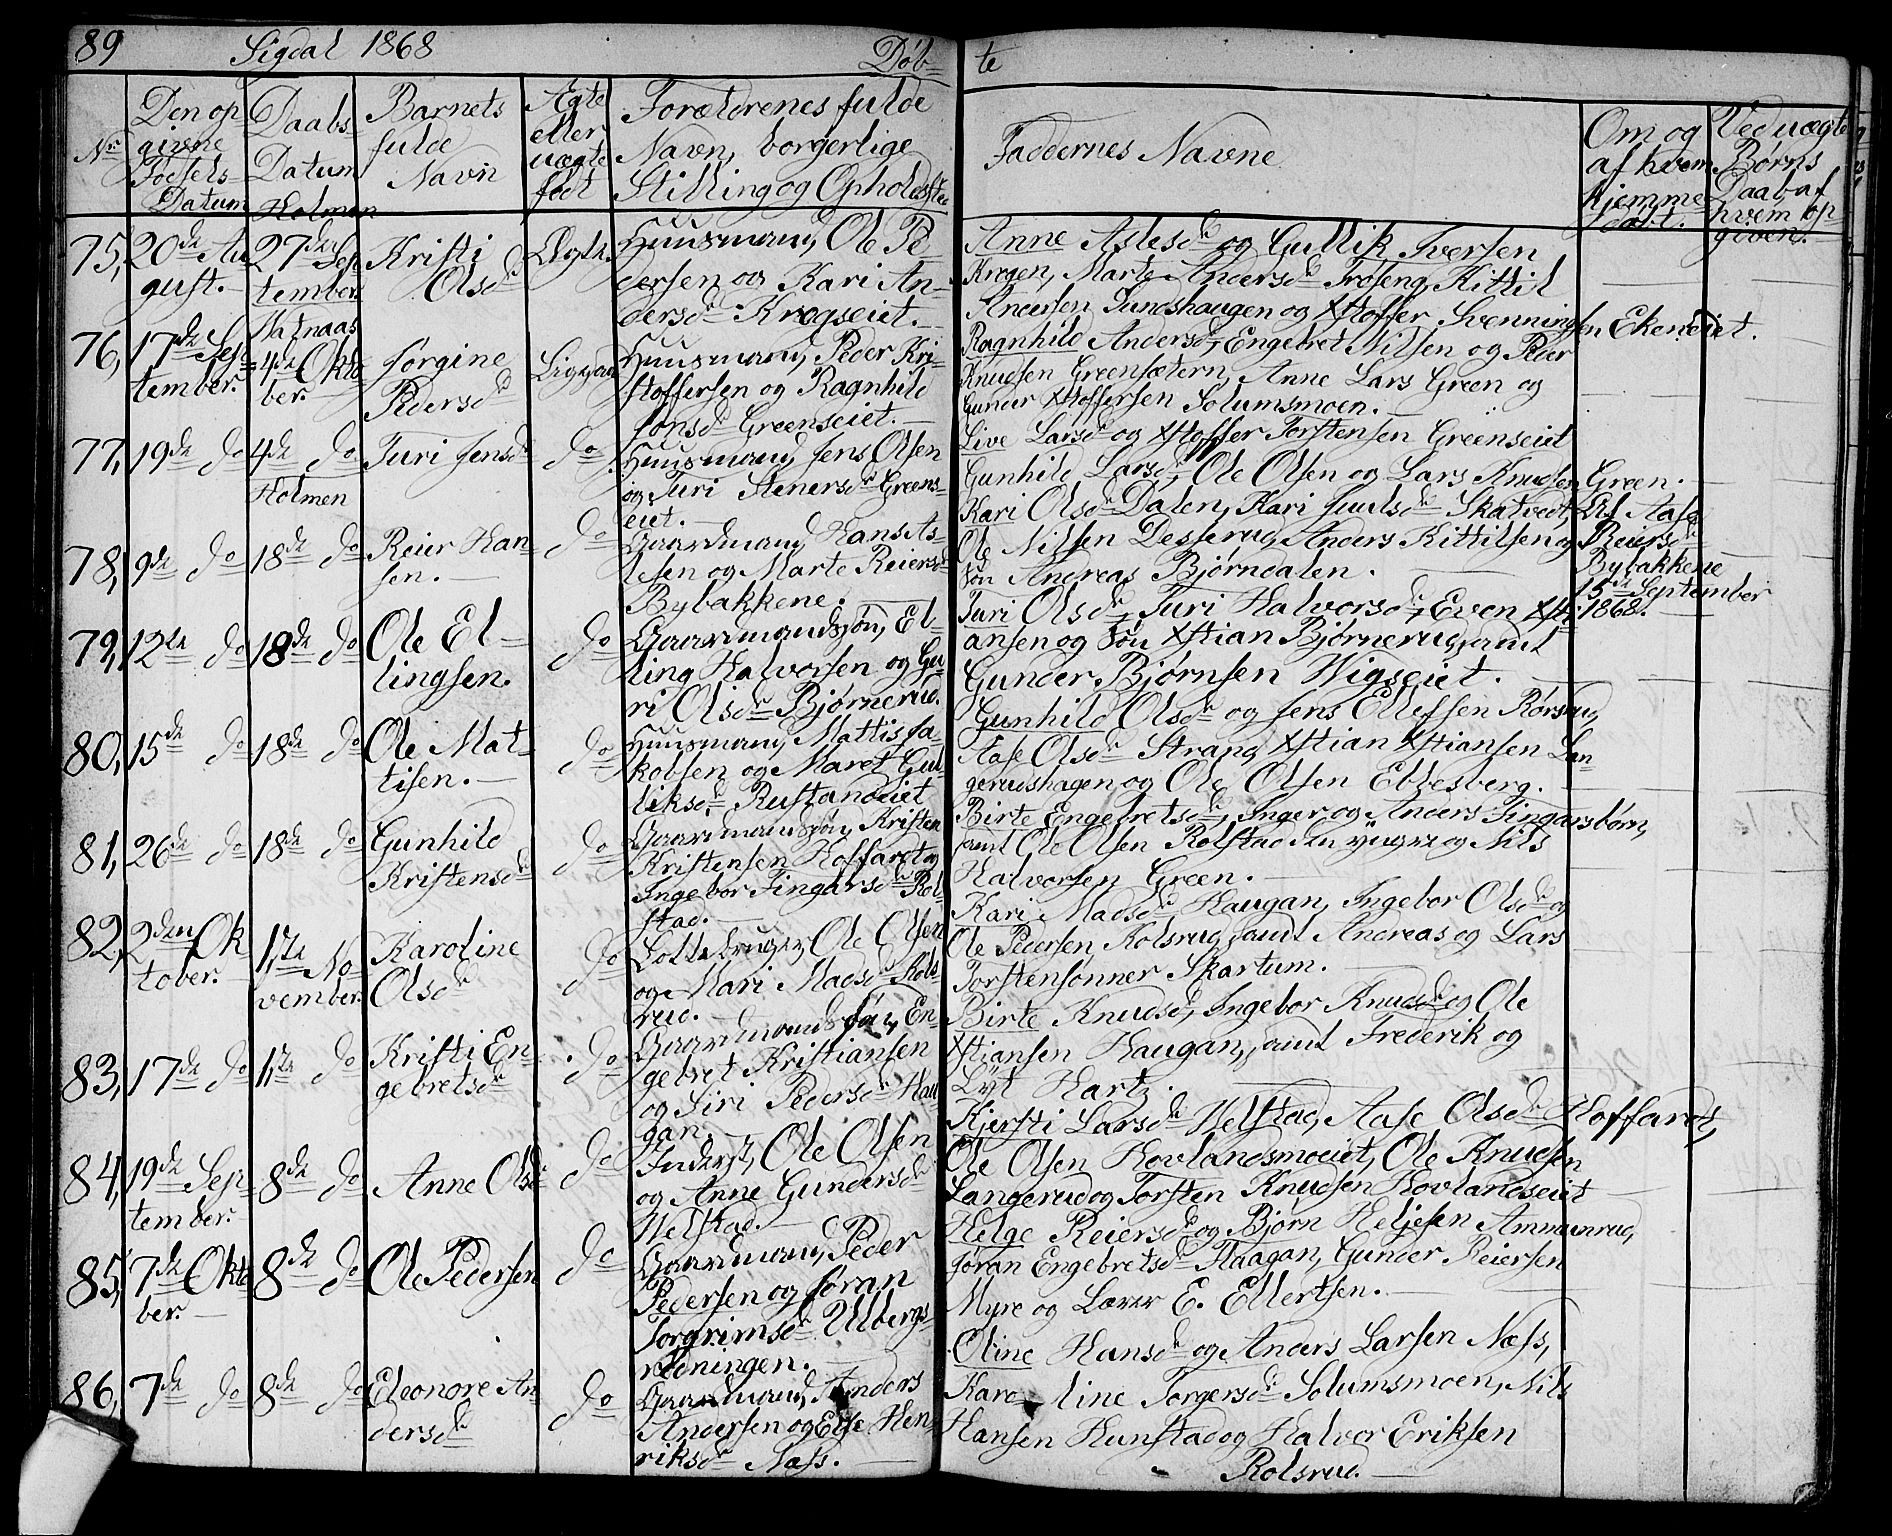 89 Sigdal 1868 Døb= te
Nr
Den op-
givne
Fødsels-
Datum
Daabs
Datum
Holmen
Barnets
fulde
Navn
Ægte
eller
uægte
født
Forældrenes fulde
Navn, borgerlige
Stilling og Opholdssted
Faddernes Navne
Om og
af hvem
hjemme-
døbt.
Ved uægte
Børns
Daab af
hvem op-
given.
75, 20de Au
gust.
27de Sep
tember.
Kristi
Olsdr
Ægte.
Huusmand, Ole Pe
dersen og Kari An-
dersdr Krogseiet.
Anne Aslesdr og Gullik Iversen
Krogen, Marte Andersdr Troseng, Kittil
Andersen Sundshaugen og Xstoffer Svenningsen Ekeneiet.
76, 17de Sep-
tember.
Natnaas
4de Okto
ber.
Jørgine
Pedersdr
Liggaa
Huusmand, Peder Kri-
stoffersen og Ragnhild
Jonsdr Greenseiet.
Ragnhild Andersdr, Engebret Nilsen og Peder
Knudsen Greensætern, Anne Lars Green og
Gunder Xstoffersen Solumsmoen.
77, 19de do
4de do
Holmen
Turi Jensdr
do
Huusmand, Jens Olsen
og Turi Stenersdr Greens-
eiet.
Live Larsdr og Xstoffer Torstensen Greenseiet
Gunhild Larsdr, Ole Olsen og Lars Knudsen Green.
78, 9de do
18de do
Reier Han-
sen.
do
Gaardmand, Hans As-
lesen og Marte Reiersdr
Bybakkene.
Kari Olsdr Dalen, Kari Juulsdr Skatvedt,
Ole Nilsen Desserud, Anders Kittilsen og
Søn Andreas Bjørndalen.
Af Aase
Reiersdr
Bybakkene
15de September
1868.
79, 12te do
18de do
Ole El-
lingsen.
do
Gaardmandssøn, El-
ling Halvorsen og Gu-
ri Olsdr Bjørnerud.
Turi Olsdr, Turi Halvorsdr, Even Xsti
ansen og Søn Xstian Bjørnerud, samt
Gunder Bjørnsen Wigseiet.
80, 15de do
18de do
Ole Mat-
tisen.
do
Huusmand, Mattis Ja-
kobsen og Maret Gul-
liksdr Rustandeiet
Gunhild Olsdr og Jens Ellefsen Rørsrud,
Aase Olsdr Strand, Xstian Xstiansen Lan-
gerudshagen og Ole Olsen Ebbesberg.
81, 26de do
18de do
Gunhild
Kristensdr
do
Gaardmandssøn, Kristen
Kristensen Hoffart og
Ingebor Fingarsdr Rol-
stad.
Birte Engebretsdr, Inger og Anders Fingarsbørn,
samt Ole Olsen Rolstad den yngre og Nils
Halvorsen Green.
82, 2den Ok
tober.
1ste No-
vember.
Karoline
Olsdr
do
Lottebruger, Ole Olsen
og Mari Madsdr Kols-
rud.
Kari Madsdr Haugan, Ingebor Olsdr og
Ole Pedersen Kolsrud, samt Andreas og Lars
Torstensønner Skartum.
83, 17de do
1ste do
Kristi En-
gebretsdr
do
Gaardmandssøn, En-
gebret Kristiansen
og Siri Pedersdr Hau-
gan.
Birte Knudsdr, Ingebor Knudsdr og Ole
Xstiansen Haugan, samt Frederik og
Lyt Hartz.
84, 19de Sep-
tember.
8de do
Anne Olsdr
do
Inderst, Ole Olsen
og Anne Gundersdr
Helstad.
Kjersti Larsdr Helstad, Aase Olsdr Hoffardt,
Ole Olsen Hovlandsmoeiet, Ole Knudsen
Langerud og Torsten Knudsen Hovlandseiet
85, 7de Okto
ber.
8de do
Ole Pedersen
do
Gaardmand, Peder
Pedersen og Jøran
Torgrimsdr Ulbergs-
rødningen.
Helge Reiersdr og Bjørn Heljesen Ammunrud,
Jøran Engebretsdr Flaagan, Gunder Reiersen
Myre og Lærer E. Ellertsen.
86, 7de do
8de do
Eleonore An
dersdr
do
Gaardmand, Anders
Andersen og Else Hen-
riksdr Næss.
Oline Hansdr og Anders Larsen Næss,
Karoline Torgersdr Solumsmoen, Nils
Hansen Hunstad og Halvor Eriksen
Rolsrud.